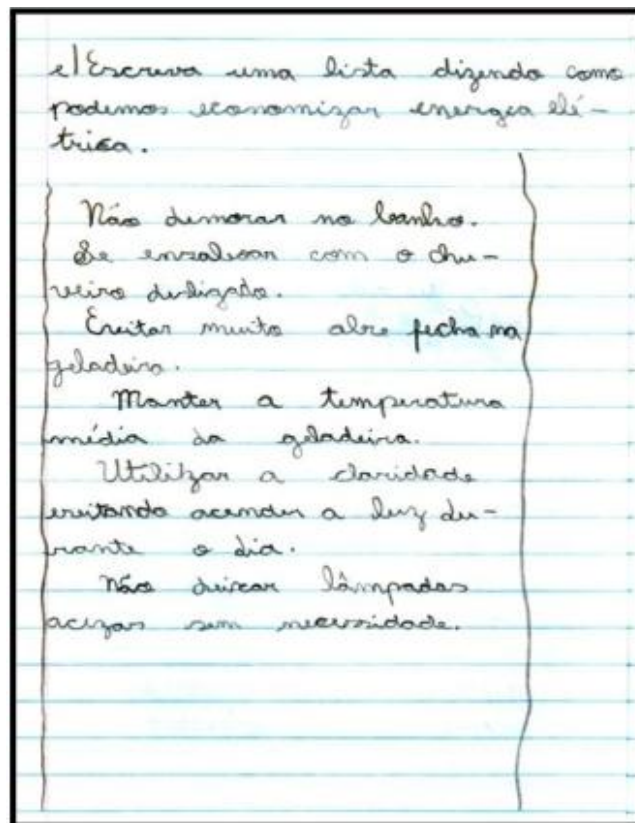 e) Escreva uma lista dizendo como
podemos economizar energia elé-
trica.
Não demorar no banho.
Se ensaboar com o chu-
veiro desligado.
Evitar muito abre fecha na
geladeira.
Manter a temperatura
média da geladeira.
Utilizar a claridade
evitando acender a luz du-
rante o dia.
Não deixar lâmpadas
acezas sem necessidade.